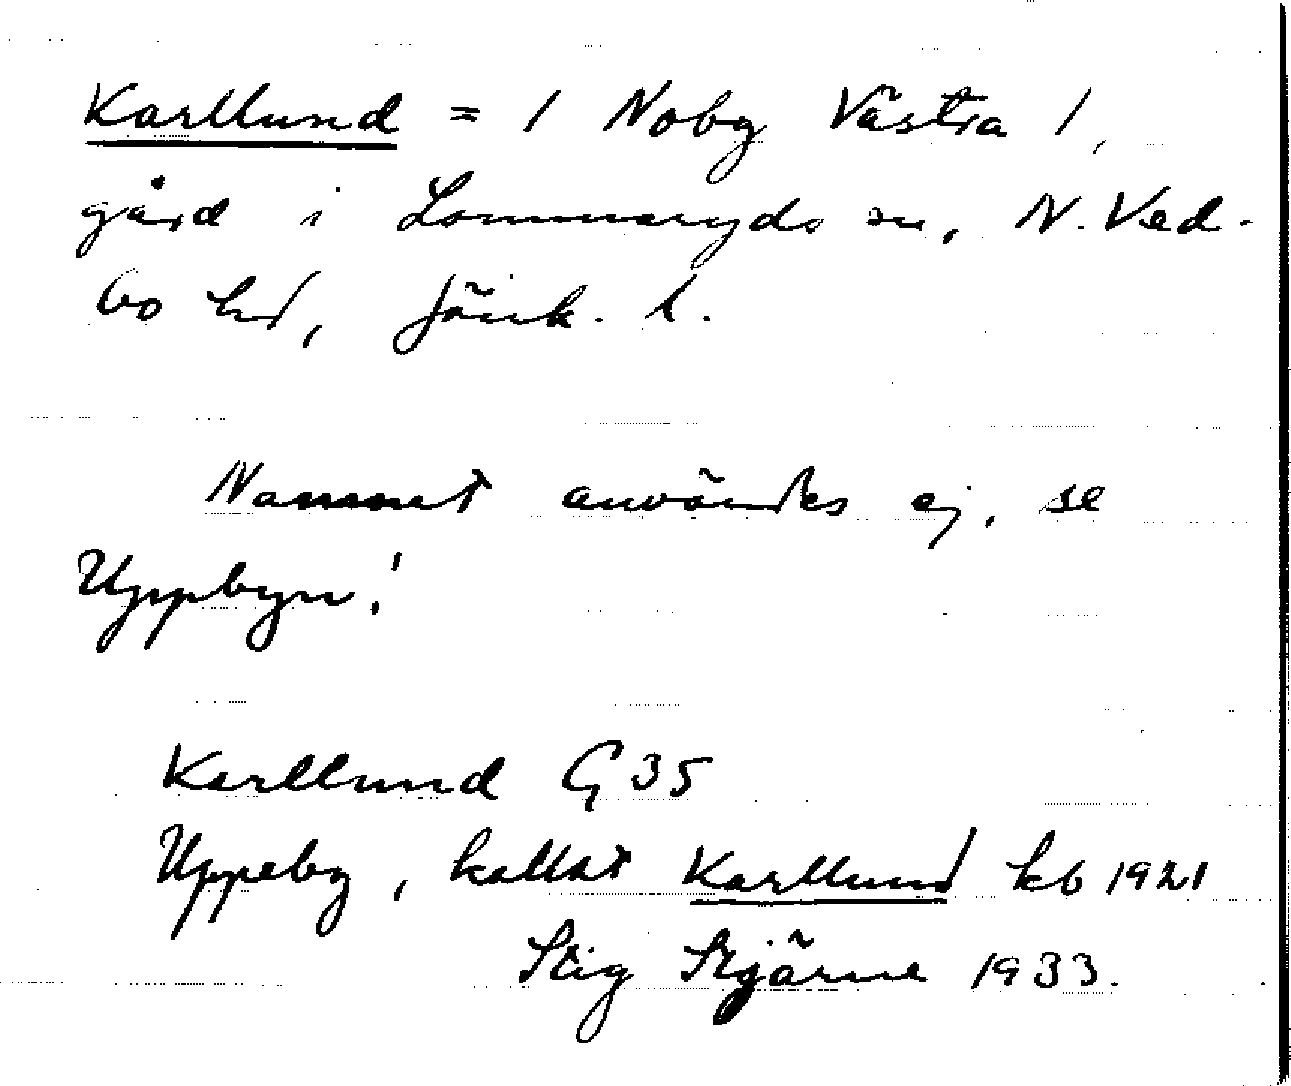 Karllund = 1 Noby Västra 1,
gård i Lommaryds sn, N. Ved-
bo hd, Jönk. l.
Namnet användes ej, se
Uppbyn!
Karllund G 35
Uppeby, kallat Karllund kb 1921
Stig Stjärne 1933.